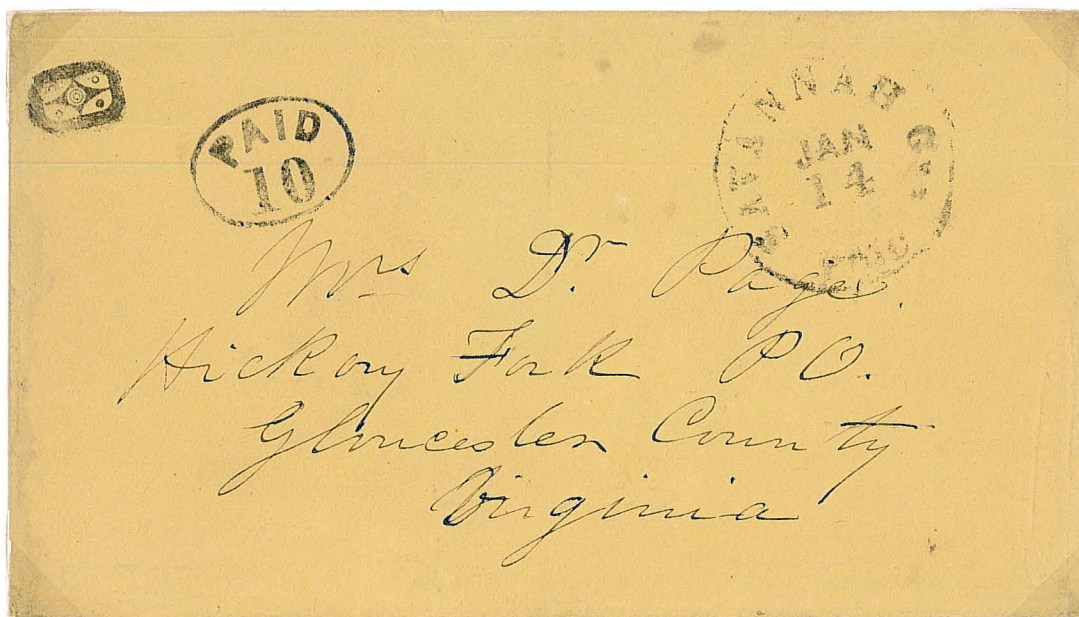 PAID
10
SAVANNAH Ga.
JAN
14
PAID
Mrs Dr. Page.
Hickory Fork P O.
Gloucester County
Virginia